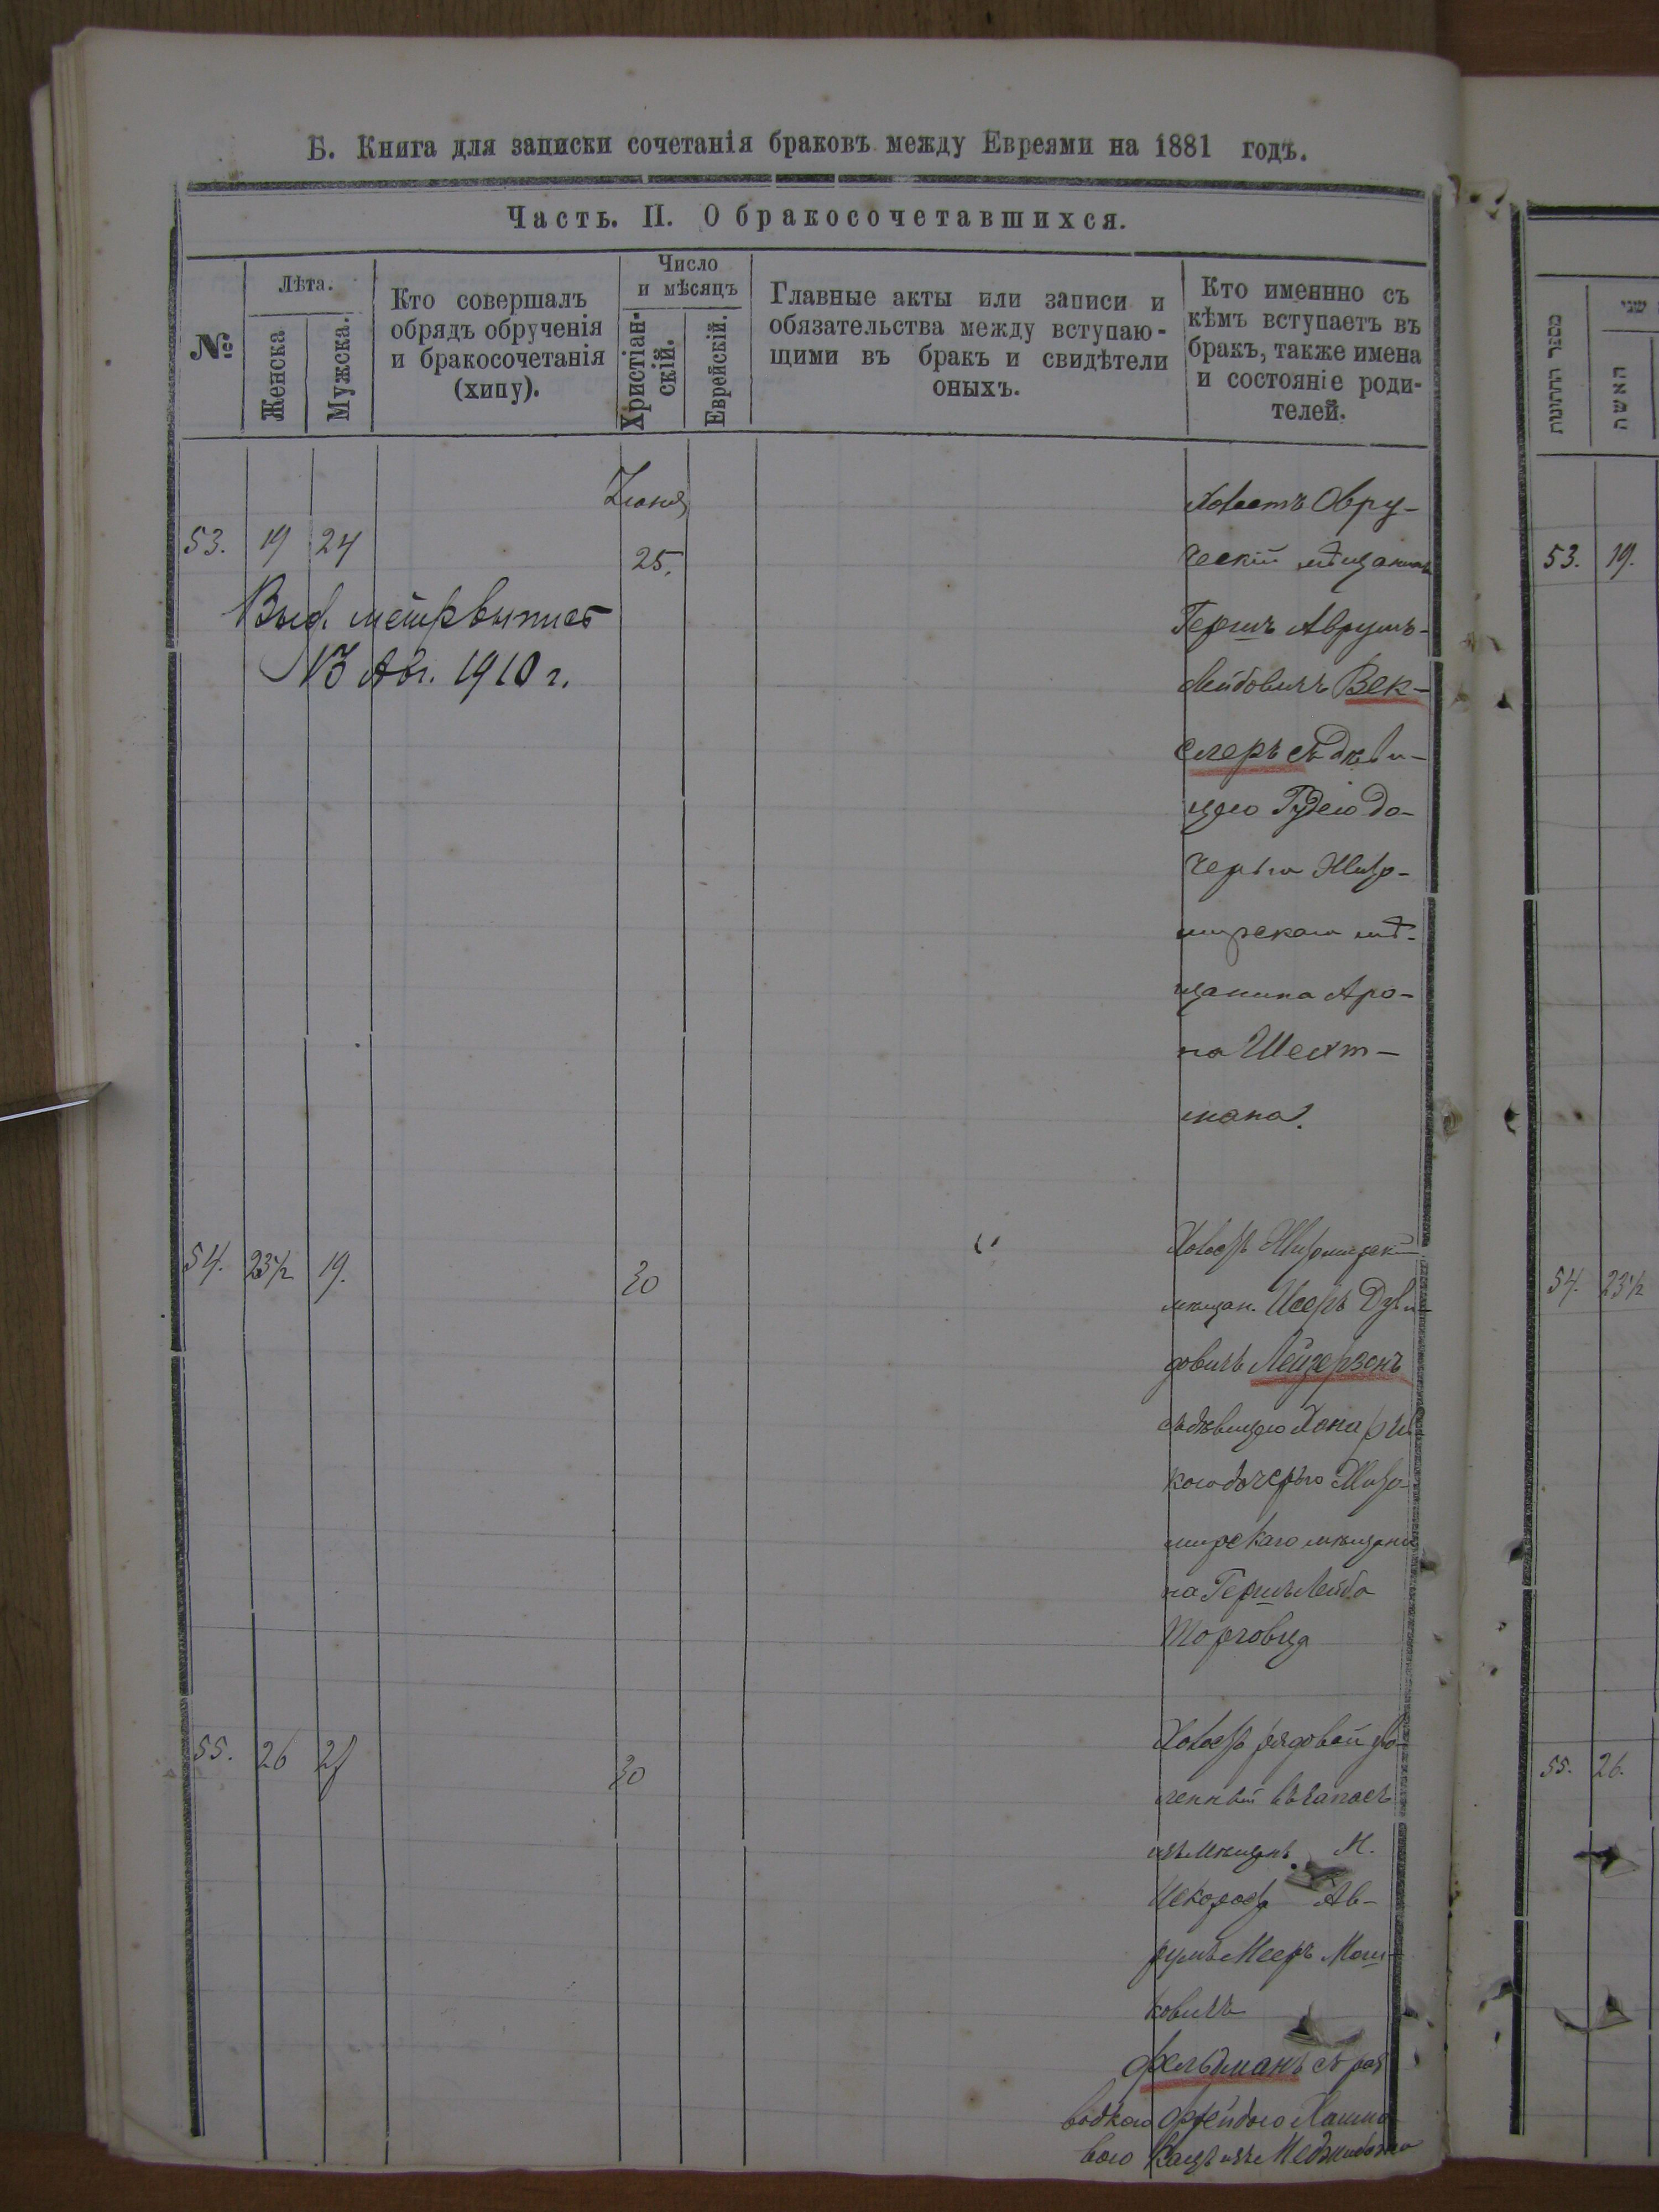 Б. Книга для записки сочетанія браковъ между Евреями на 1881 годъ.
Часть. II. О бракосочетавшихся.
№
Лѣта.
Женска
Мужска.
Кто совершалъ
обрядъ обрученія
и бракосочетанія
(хипу).
Число
и мѣсяцъ
Христіан-
скій.
Еврейскій.
Главные акты или записи и
обязательства между вступаю-
щими въ бракъ и свидѣтели
оныхъ.
Кто именнно съ
кѣмъ вступаетъ въ
бракъ, также имена
и состояніе роди-
телей.
מספר החתונות
שני
האשה
Іюня
53. 19 24 25.
Выд. метр выпись
13 Авг. 1910 г.
Холостъ Овру-
ческій мѣщанинъ
Гершъ Аврумъ-
Лейбовичъ Век-
слеръ съ дѣви-
цею Гудею до-
черью Жито-
мирскаго мѣ-
щанина Аро-
на Шехт-
мана.
54. 23½ 19. 30
Холостъ Житомирскій
мѣщан. Исеръ Дуви-
довичъ Лейзерзонъ
съ дѣвицею Хона
дочерью Жито-
мирскаго мѣщани
на Гершъ Лейба
Торговца
55. 26 30
Холостъ рядовой
въ запасъ
изъ мѣщанъ М.
Искорость Ав-
румъ Мееръ Мош-
ковичъ
Фельдманъ съ раз
водкою Фрейдою
вою Кацъ изъ Меджибожа
53. 19.
54. 23½
55. 26.